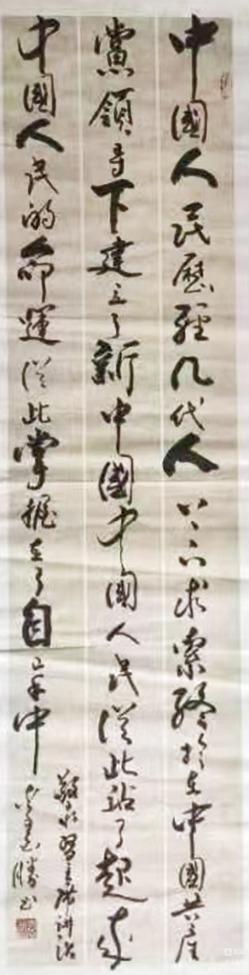 中國人民歷經几代人上下求索終於在中國共産
黨領导下建立了新中國中國人民從此站了起来
中國人民的命運從此掌握在了自己手中
敬录習主席讲话